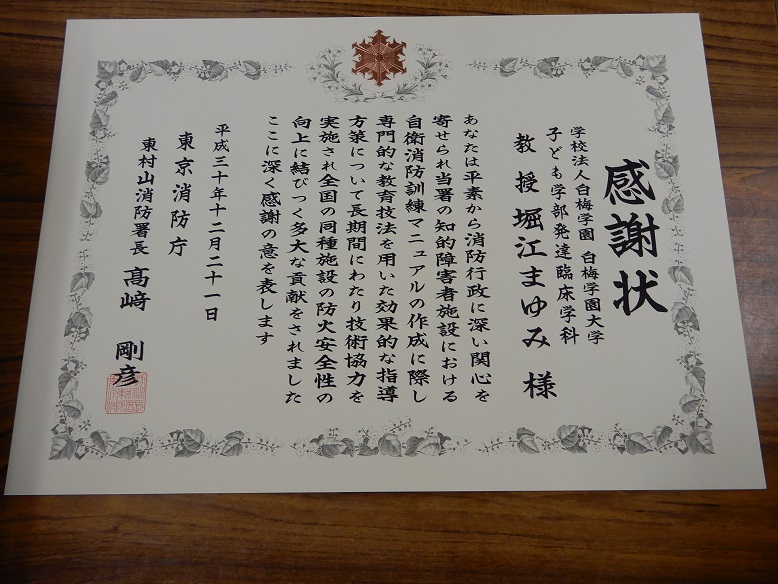 感謝状
学校法人白梅学園 白梅学園大学
子ども学部発達臨床学科
教授 堀江まゆみ 様
あなたは平素から消防行政に深い関心を
寄せられ当署の知的障害者施設における
自衛消防訓練マニュアルの作成に際し
専門的な教育技法を用いた効果的な指導
方策について長期間にわたり技術協力を
実施され全国の同種施設の防火安全性の
向上に結びつく多大な貢献をされました
ここに深く感謝の意を表します
平成三十年十二月二十一日
東京消防庁
東村山消防署長 髙﨑 剛彦